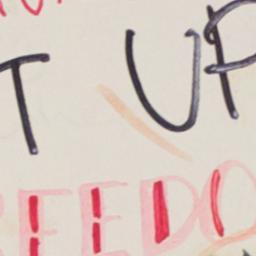 T UP
EEDO